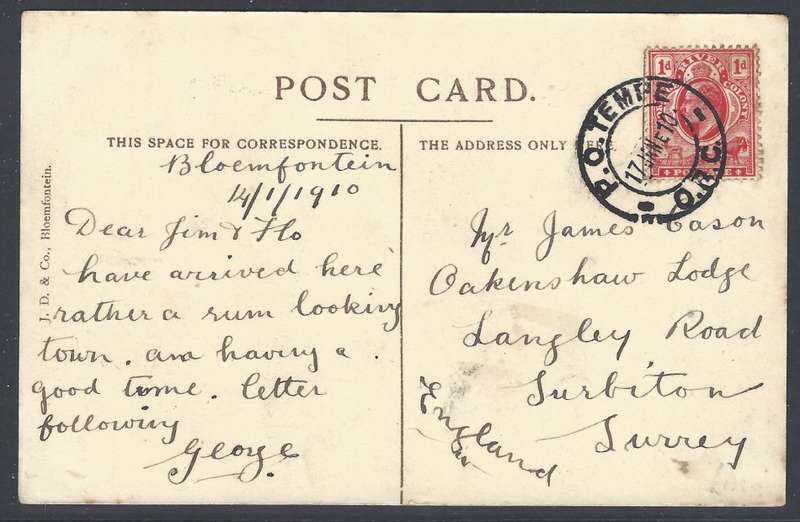 POST CARD.
THIS SPACE FOR CORRESPONDENCE.
Bloemfontein
14/1/1910
Dear Jim & Flo
have arrived here
rather a rum looking
town. am having a
good time. letter
following
George
J. D. & Co., Bloemfontein.
THE ADDRESS ONLY
1d RIVER COLONY 1d
P.O. TEMPE
17 10
O.R.C.
Mr James Cason
Oakenshaw Lodge
Langley Road
Surbiton
Surrey
England